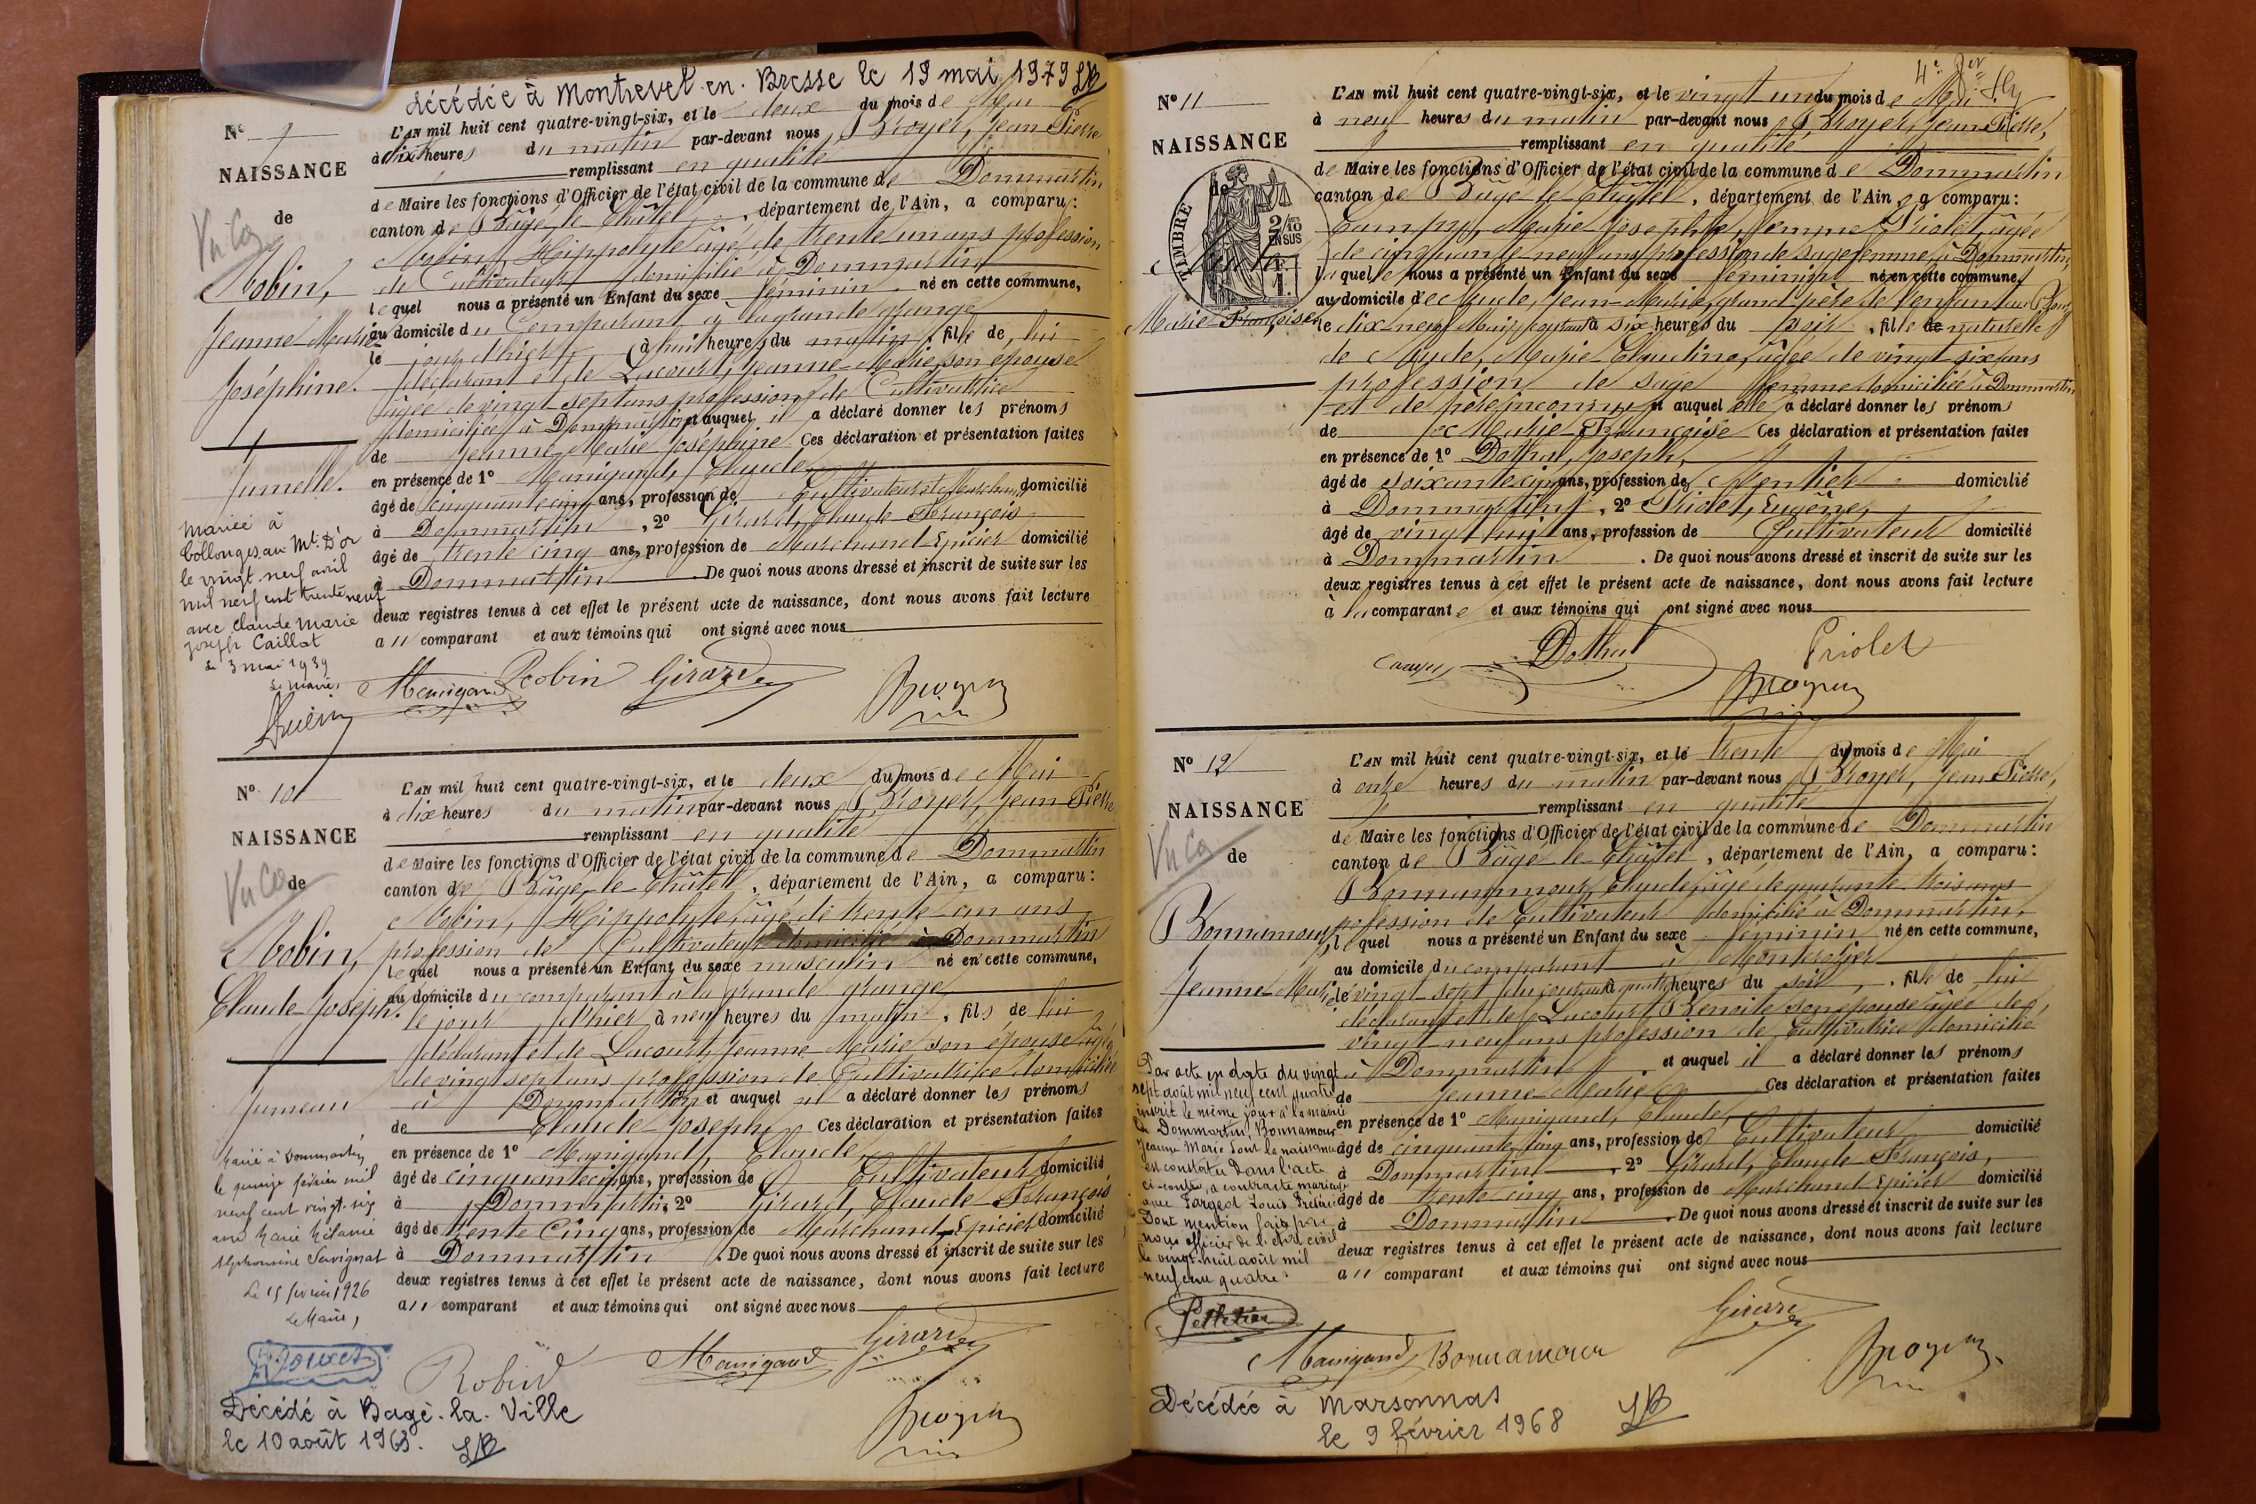 décédée à Montrevel-en-Bresse le 19 mai 1979 LB
N° 9
NAISSANCE
de
Vu Ca
Robin,
Jeanne-Marie
Joséphine.
Jumelle.
Mariée à
Collonges au Mt. D'or
le vingt-neuf avril
mil neuf cent trente neuf
avec Claude Marie
Joseph Caillat
le 3 mai 1939
Le maire,
L'AN mil huit cent quatre-vingt-six, et le deux du mois de Mai
à dix heures du matin par-devant nous Broyer, Jean Pierre
remplissant en qualité
de Maire les fonctions d'Officier de l'état civil de la commune de Dommartin
canton de Bâgé-le-Châtel, département de l'Ain, a comparu :
Robin, Hippolyte âgé de trente-un ans profession
de Cultivateur domicilié à Dommartin
lequel nous a présenté un Enfant du sexe féminin né en cette commune,
au domicile du Comparant à la grande grange
le jour d'hier à huit heures du matin, fille de lui
déclarant et de Lacourt, Jeanne-Marie son épouse
âgée de vingt-sept ans profession de Cultivatrice
domiciliée à Dommartin et auquel il a déclaré donner les prénoms
de Jeanne Marie Joséphine Ces déclaration et présentation faites
en présence de 1° Manigand, Claude
âgé de cinquante cinq ans, profession de Cultivateur domicilié
à Dommartin, 2° Girard, Claude François
âgé de trente cinq ans, profession de Marchand-Epicier domicilié
à Dommartin De quoi nous avons dressé et inscrit de suite sur les
deux registres tenus à cet effet le présent acte de naissance, dont nous avons fait lecture
au comparant et aux témoins qui ont signé avec nous
Manigand Robin Girard Broyer
N° 10
NAISSANCE
de
Vu Ca
Robin,
Claude-Joseph.
Jumeau
Marié à Dommartin
le quinze février mil
neuf cent vingt-six
avec Marie Mélanie
Alphonsine Servignat
Le 15 février 1926
Le Maire,
L'AN mil huit cent quatre-vingt-six, et le deux du mois de Mai
à dix heures du matin par-devant nous Broyer, Jean-Pierre
remplissant en qualité
de Maire les fonctions d'Officier de l'état civil de la commune de Dommartin
canton de Bâgé-le-Châtel, département de l'Ain, a comparu :
Robin, Hippolyte, âgé de trente-un ans
profession de Cultivateur domicilié à Dommartin
lequel nous a présenté un Enfant du sexe masculin né en cette commune,
au domicile du comparant à la grande grange
le jour d'hier à neuf heures du matin, fils de lui
déclarant et de Lacourt, Jeanne-Marie son épouse âgée
de vingt sept ans profession de Cultivatrice domiciliée
à Dommartin et auquel il a déclaré donner les prénoms
de Claude-Joseph Ces déclaration et présentation faites
en présence de 1° Manigand, Claude,
âgé de cinquante cinq ans, profession de Cultivateur domicilié
à Dommartin, 2° Girard, Claude François
âgé de trente Cinq ans, profession de Marchand-Epicier domicilié
à Dommartin. De quoi nous avons dressé et inscrit de suite sur les
deux registres tenus à cet effet le présent acte de naissance, dont nous avons fait lecture
au comparant et aux témoins qui ont signé avec nous
Robin Manigand Girard
Broyer
Décédé à Bagé-la-Ville
le 10 août 1963. LB
4e
N° 11
NAISSANCE
de
TIMBRE
2/10
EN SUS
1 F.
Marie-Françoise
L'AN mil huit cent quatre-vingt-six, et le vingt un du mois de Mai
à neuf heures du matin par-devant nous Broyer, Jean-Pierre,
remplissant en qualité
de Maire les fonctions d'Officier de l'état civil de la commune de Dommartin
canton de Bâgé-le-Châtel, département de l'Ain, a comparu :
Campy, Marie Josephte, femme Priolet, âgée
de cinquante-neuf ans profession de sage femme à Dommartin,
laquelle nous a présenté un Enfant du sexe féminin né en cette commune,
au domicile de Jean-Marie, grand père de l'enfant
le dix-neuf Mai courant à six heures du soir, fille naturelle
de Marie Claudine, âgée de vingt six ans
profession de domiciliée à Dommartin
et de père inconnu et auquel elle a déclaré donner les prénoms
de Marie-Françoise Ces déclaration et présentation faites
en présence de 1° Dothal, Joseph,
âgé de soixante cinq ans, profession de Rentier domicilié
à Dommartin, 2° Priolet, Eugène,
âgé de vingt huit ans, profession de Cultivateur domicilié
à Dommartin. De quoi nous avons dressé et inscrit de suite sur les
deux registres tenus à cet effet le présent acte de naissance, dont nous avons fait lecture
à la comparante et aux témoins qui ont signé avec nous
Campy Dothal Priolet
Broyer
N° 12
NAISSANCE
de
Vu Ca
Bonnamour,
Jeanne-Marie
Par acte en date du vingt
sept août mil neuf cent quatre
inscrit le même jour à la mairie
de Dommartin, Bonnamour
Jeanne Marie dont la naissance
est constatée dans l'acte
ci-contre, a contracté mariage
avec Fargeot Louis Frédéric
Dont mention faite par
nous officier de l'état civil
le vingt-huit août mil
neuf cent quatre
Pelletier
L'AN mil huit cent quatre-vingt-six, et le trente du mois de Mai
à onze heures du matin par-devant nous Broyer, Jean-Pierre,
remplissant en qualité
de Maire les fonctions d'Officier de l'état civil de la commune de Dommartin
canton de Bâgé-le-Châtel, département de l'Ain, a comparu :
Bonnamour, Claude, âgé de quarante-trois ans
profession de Cultivateur domicilié à Dommartin,
lequel nous a présenté un Enfant du sexe féminin né en cette commune,
au domicile du comparant à Montcrozier
le vingt-sept du courant à quatre heures du soir, fille de lui
déclarant et de Lacourt, Benoite son épouse âgée de
vingt neuf ans profession de Cultivatrice domiciliée
à Dommartin et auquel il a déclaré donner les prénoms
de Jeanne-Marie Ces déclaration et présentation faites
en présence de 1° Manigand, Claude,
âgé de cinquante cinq ans, profession de Cultivateur domicilié
à Dommartin, 2° Girard, Claude-François,
âgé de trente cinq ans, profession de Marchand-Epicier domicilié
à Dommartin. De quoi nous avons dressé et inscrit de suite sur les
deux registres tenus à cet effet le présent acte de naissance, dont nous avons fait lecture
au comparant et aux témoins qui ont signé avec nous
Girard
Manigand Bonnamour Broyer
Décédée à Marsonnas
le 9 février 1968 LB